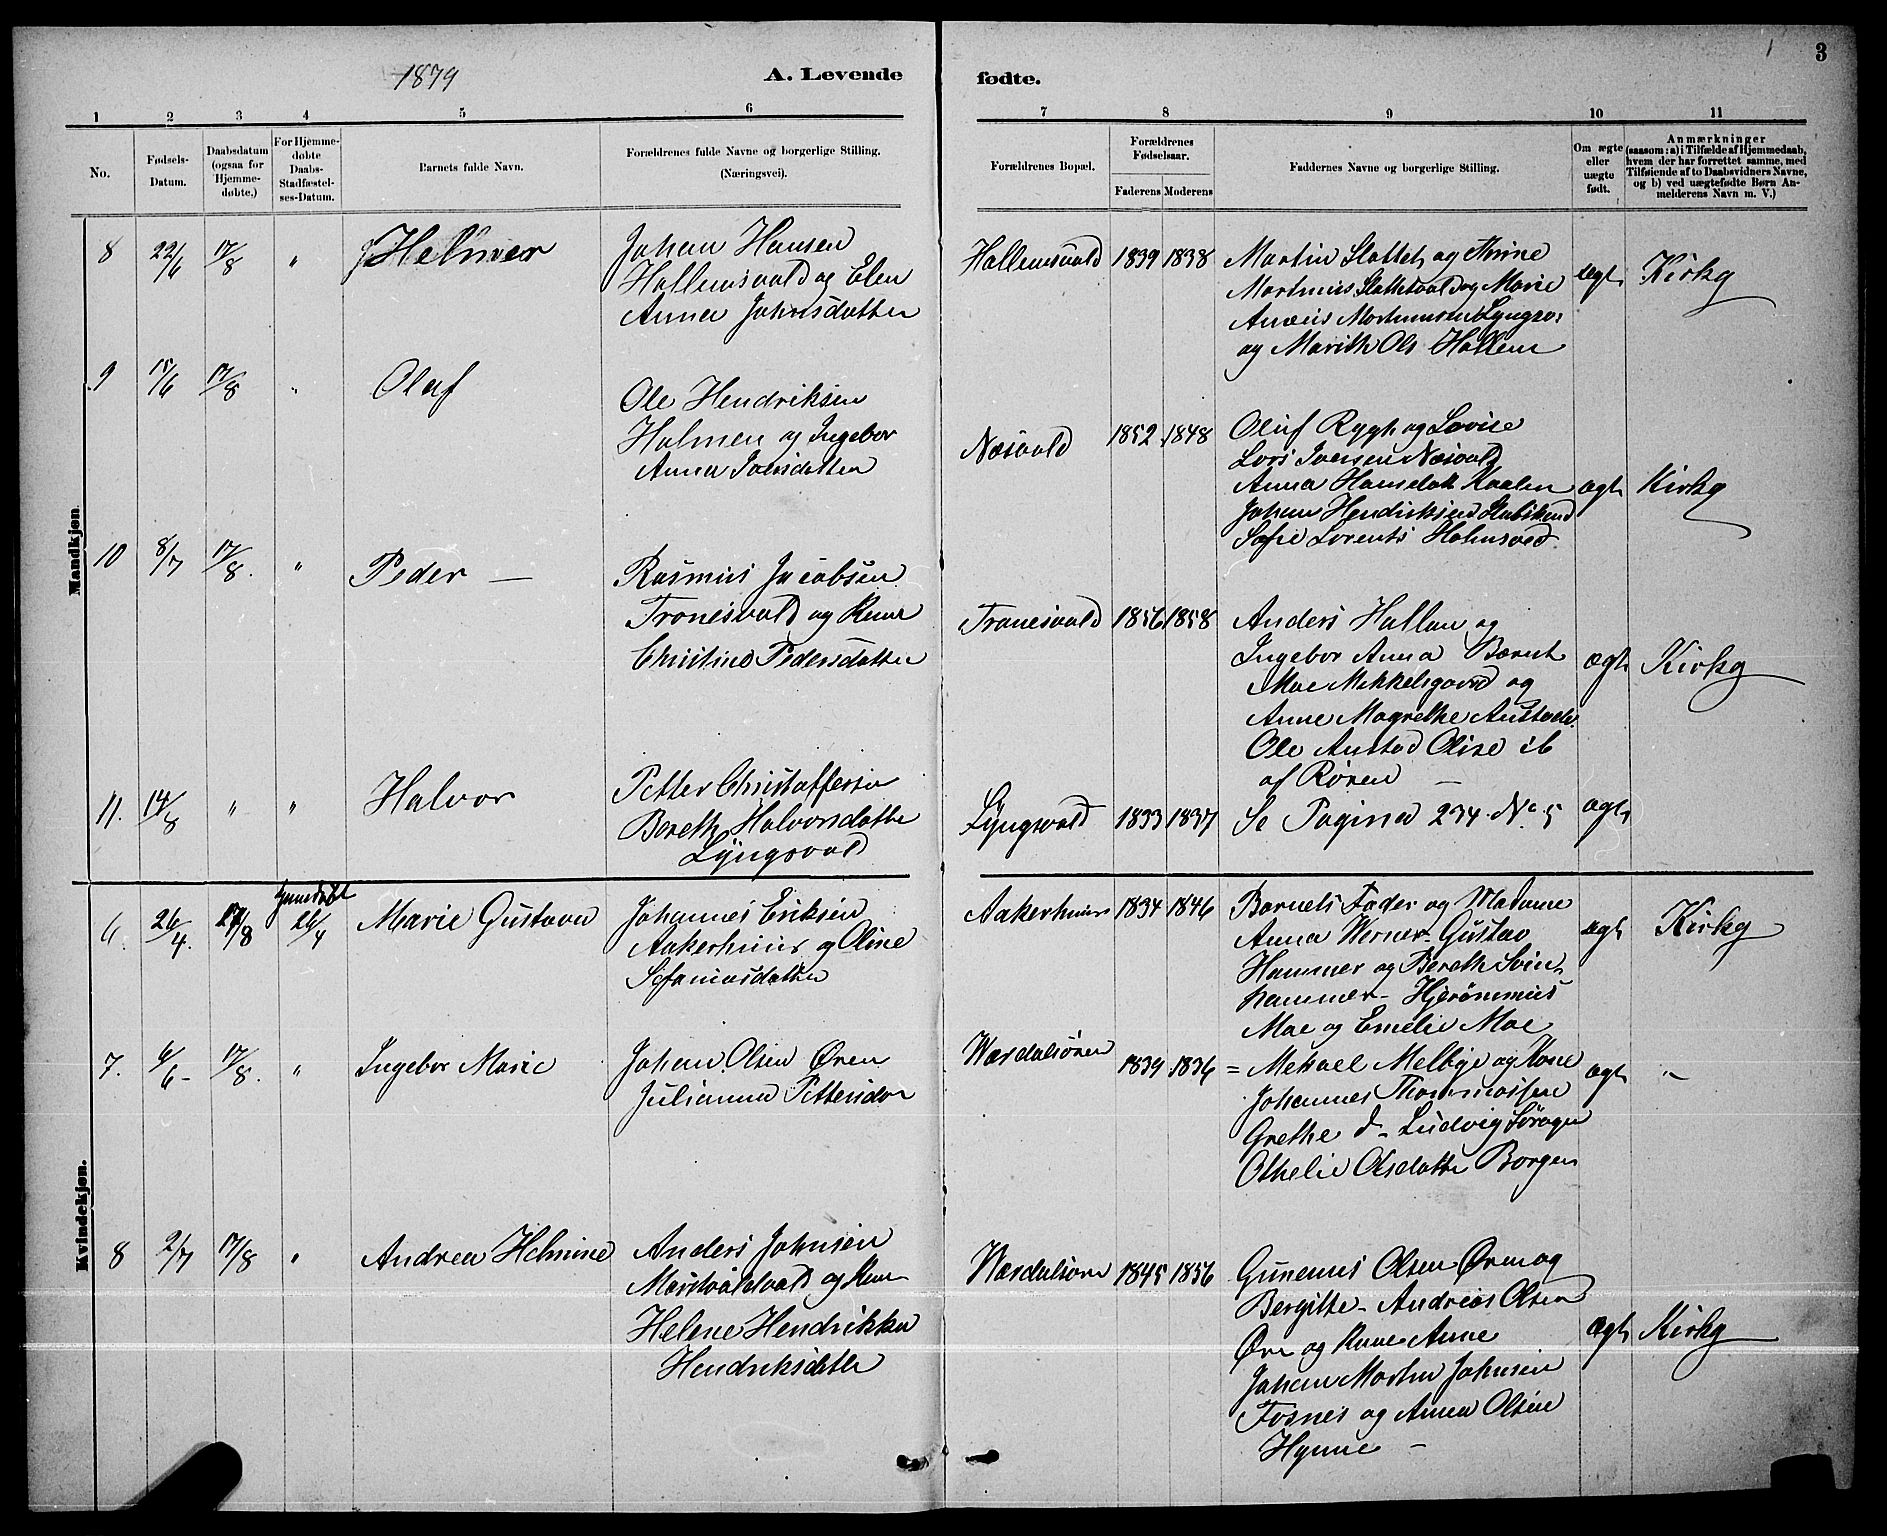 1879
A. Levende fødte.
3
1 2 3 4 5 6 7 8 9 10 11
No.
Fødsels-
Datum.
Daabsdatum
(ogsaa for
Hjemme-
døbte.)
For Hjemme-
døbte
Daabs-
Stadfæstel-
ses-Datum.
Barnets fulde Navn.
Forældrenes fulde Navne og borgerlige Stilling.
(Næringsvei).
Forældrenes Bopæl.
Forældrenes
Fødselsaar.
Faderens Moderens
Faddernes Navne og borgerlige Stilling.
Om ægte
eller
uægte
født.
Anmærkninger
(saasom: a) i Tilfælde af Hjemmedaab,
hvem der har forrettet samme, med
Tilføiende af to Daabsvidners Navne,
og b) ved uægtefødte Børn An-
melderens Navn m. V.)
Mandkjøn
8 22/6 17/8 " Helmer
Johan Hansen
Hallemsvald og Elen
Anna Johnsdatter
Hallemsvald 1839 1838
Martin Slottet og Anne
Martinus Slottetvald og Marie
Anæus Martinusen Lyngs
og Marith Ols Hallem
ægt Kirkg
9 15/6 17/8 " Olaf
Ole Hendriksen
Holmen og Ingebor
Anna
Næsvald 1852 1848
Oluf Rygh og Lovise
Lars Iversen Næsvald
Anna Hansdat Kaalen
Johan Hendriksen
Sofie Lorents
ægt Kirkg
10 8/7 17/8. " Peder —
Rasmus Jacobsen
Tronesvald og Kone
Christine Pedersdatter
Tronesvald 1856 1858
Anders Hallan og
Ingebor Anna Bærnt
Moe Mikkelsgaard og
Anne Magrethe Austad
Ole Austad Olise ib
af Røren —
ægt Kirkg
11. 14/8 " " Halvor
Petter Christoffersen
Bereth Halvorsdatter
Lyngsvald
Lyngsvald 1833 1837
Se Pagina 234. No 5
ægt
Kvindekjøn.
6. 26/4. 17/8 26/4 Marie Gustava
Johannes Eriksen
Aakerhuus og Oline
Sefaniasdatter
Aakerhuus 1834 1846
Barnets Fader og Madame
Anna Werner- Gustav
Hammer og Bereth Svin-
hammer- Hjerømmus
Moe og Emelie Moe
ægt Kirkg
7. 6/6- 17/8. " Ingebor Marie
Johan Olsen Øren
Julianna Pettersdor
Værdalsøren 1839 1836
= Mekael Melbye og Kone
Johannes Thommassen
Grethe d- Ludvig
Othelie Olsdatte Borgen
ægt "
8 2/7 17/8 " Andrea Helmine
Anders Johnsen
og Kone
Helene Hendrikka
Hendriksdatter
Værdalsøre 1845 1856
Gunerius Olsen Øren og
Bergitte- Andreas Olsen
Øre og Kone Anne
Johan Martin Johnsen
Fosnes og Anna Olsen
Hynne —
ægt Kirkg